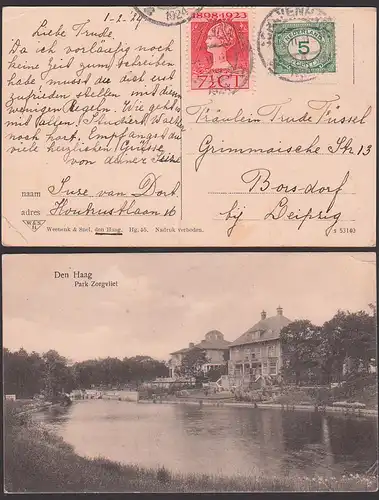 1-2. 24
1924
1898-1923
7½CT
NEDERLAND
5
Liebe Trude.
Da ich vorläufig noch
keine Zeit zum schreiben
habe, musst du dich erst
zufrieden stellen mit den
wenigen Regeln. Wie geht
mit allen? Studiert Walter
noch hart. Empfangst du
viele herzlichen Grüsse
von deiner Suze
Fräulein Trude Füssel
Grimmaische Str. 13
Borsdorf
bij Leipzig
naam Suze van Dort
adres Houtrustlaan 16
Weenenk & Snel, den Haag. Hg. 55. Nadruk verboden.
53140
Den Haag
Park Zorgvliet